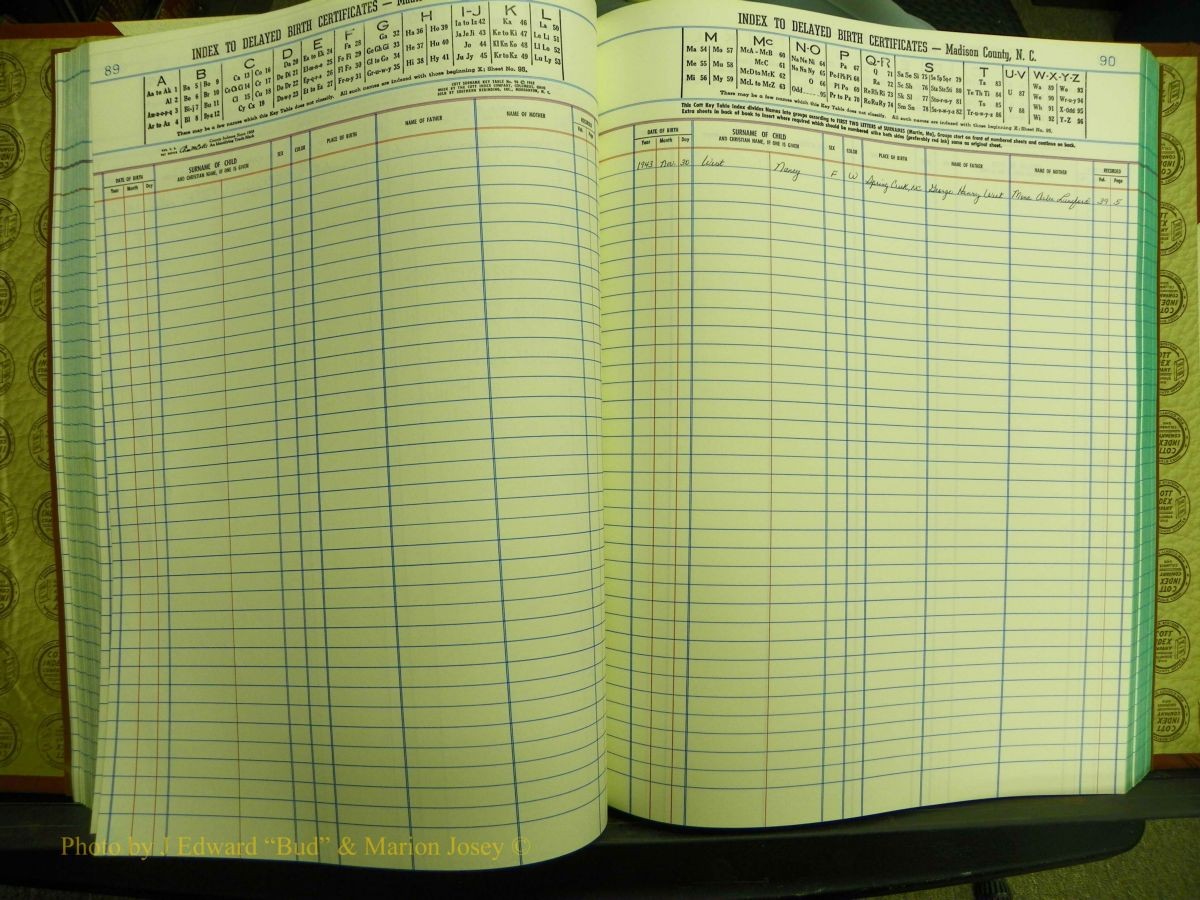 89
INDEX TO DELAYED BIRTH CERTIFICATES — Madi
A B C D E F G H I-J K L
Aa to Ak 1 Ba 5 Be 9 Ca 13 Co 16 Da 20 Ea to Ek 24 Fa 28 Ga 32 Ha 36 Ho 39 Ia to Iz 42 Ka 46 La 50
Al 2 Be 6 Br 10 Ce Ch Ci 14 Cr 17 De Di 21 El-m-n-o 25 Fe Fi 29 Ge Gh Gi 33 He 37 Hu 40 Ja Je Ji 43 Ke to Ki 47 Le Li 51
Am-n-o-p-q 3 Bi-j 7 Bu 11 Cl 15 Cu 18 Do Dr 22 Ep-q-r-s 26 Fl Fo 30 Gl to Go 34 Hi 38 Hy 41 Jo 44 Kl Kn Ko 48 Ll Lo 52
Ar to Az 4 Bl 8 By-z 12 Cy Cz 19 Du-w-y 23 Et to Ez 27 Fr-u-y 31 Gr-u-w-y 35 Ju Jy 45 Kr to Kz 49 Lu Ly 53
There may be a few names which this Key Table does not classify. All such names are indexed with those beginning X: Sheet No. 95.
COTT SURNAME KEY TABLE No. 96
MADE BY THE COTT INDEX COMPANY, COLUMBUS, OHIO
SOLD BY OBSERVER BINDERY, INC.
DATE OF BIRTH
Year Month Day
SURNAME OF CHILD
AND CHRISTIAN NAME, IF ONE IS GIVEN
SEX
COLOR
PLACE OF BIRTH
NAME OF FATHER
NAME OF MOTHER
RECORDED
Vol. Page
INDEX TO DELAYED BIRTH CERTIFICATES — Madison County, N. C.
90
M Mc N-O P Q-R S T U-V W-X-Y-Z
Ma 54 Mo 57 McA - McB 60 Na Ne Ni 64 Pa 67 Q 71 Sa Sc Si 75 So Sp Sq-r 79 Ta 83 U 87 Wa 89 Wo 93
Me 55 Mu 58 McC 61 No Nu Ny 65 Pe Ph Pi 68 Ra 72 Se Sh 76 Sta Ste Sti 80 Te Th Ti 84 V 88 We 90 Wr-u-y 94
Mi 56 My 59 McD to McK 62 O 66 Pl Po 69 Re Rh Ri 73 Sk Sl 77 Sto-r-u-y 81 To 85 Wh 91 X-Odd 95
McL to McZ 63 Odd 95 Pr to Pz 70 Ro Ru Ry 74 Sm Sn 78 Su-v-w-y-z 82 Tr-u-w-y-z 86 Wi 92 Y-Z 96
There may be a few names which this Key Table does not classify. All such names are indexed with those beginning X: Sheet No. 95.
This Cott Key Table Index divides Names into groups according to FIRST TWO LETTERS of SURNAMES (Martin, Ma). Groups start on front of numbered sheets and continue on back.
Extra sheets in back of book to insert where required should be numbered alike both sides (preferably red ink) same as original sheet.
DATE OF BIRTH
Year Month Day
SURNAME OF CHILD
AND CHRISTIAN NAME, IF ONE IS GIVEN
SEX
COLOR
PLACE OF BIRTH
NAME OF FATHER
NAME OF MOTHER
RECORDED
Vol. Page
1943 Nov. 30 West Nancy F W Spring Creek, NC George Henry West Mona Arlee Lunsford 39 5
COTT INDEX COMPANY
Photo by J Edward “Bud” & Marion Josey ©